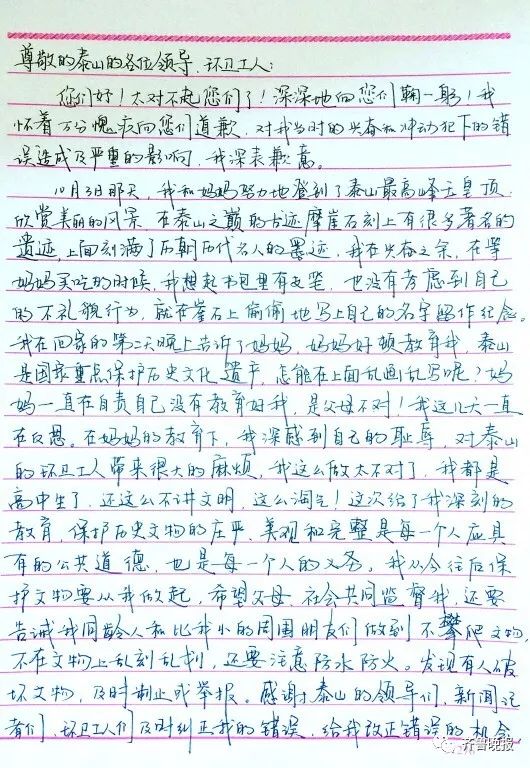 尊敬的泰山的各位领导、环卫工人：
您们好！太对不起您们了！深深地向您们鞠一躬！我
怀着万分愧疚向您们道歉，对我当时的兴奋和冲动犯下的错
误造成及严重的影响，我深表歉意。
10月3日那天，我和妈妈努力地登到了泰山最高峰玉皇顶，
欣赏美丽的风景，在泰山之巅的古迹摩崖石刻上有很多著名的
遗迹，上面刻满了历朝历代名人的墨迹，我在兴奋之余，在等
妈妈买吃的时候，我想起书包里有支笔，也没有考虑到自己
的不礼貌行为，就在崖石上偷偷地写上自己的名字留作纪念。
我在回家的第二天晚上告诉了妈妈，妈妈好顿教育我，泰山
是国家重点保护历史文化遗产，怎能在上面乱画乱写呢？妈
妈一直在自责自己没有教育好我，是父母不对！我这几天一直
在反思。在妈妈的教育下，我深感到自己的耻辱，对泰山
的环卫工人带来很大的麻烦，我这么做太不对了，我都是
高中生了，还这么不讲文明，这么淘气！这次给了我深刻的
教育，保护历史文物的庄严、美观和完整是每一个人应具
有的公共道德，也是每一个人的义务。我从今往后保
护文物要从我做起，希望父母、社会共同监督我，还要
告诫我同龄人和比我小的周围朋友们做到不攀爬文物，
不在文物上乱刻乱划，还要注意防水防火。发现有人破
坏文物，及时制止或举报。感谢泰山的领导们，新闻记
者们，环卫工人们及时纠正我的错误，给我改正错误的机会
齐鲁晚报